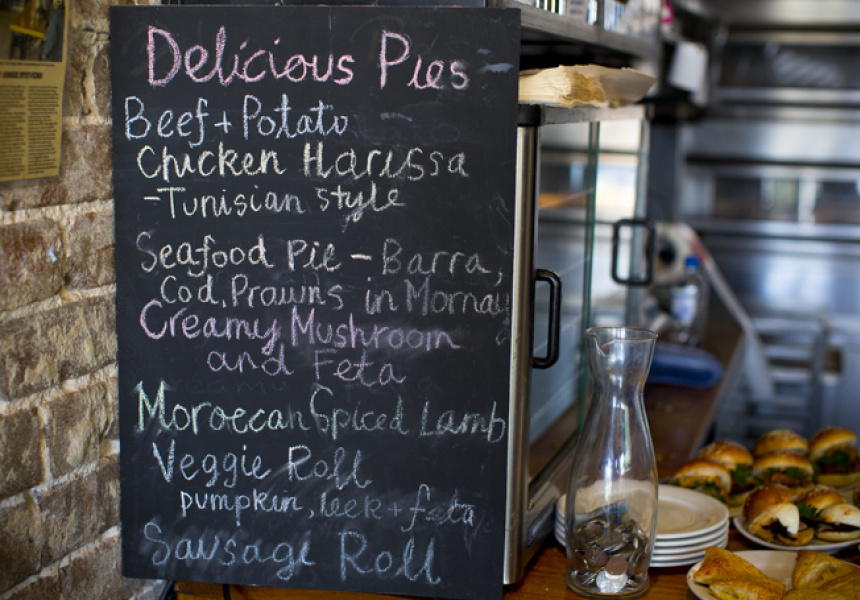 Delicious Pies
Beef + Potato
Chicken Harissa
- Tunisian style
Seafood Pie - Barra,
Cod, Prawns in Mornay
Creamy Mushroom
and Feta
Moroccan Spiced Lamb
Veggie Roll
pumpkin, leek + feta
Sausage Roll